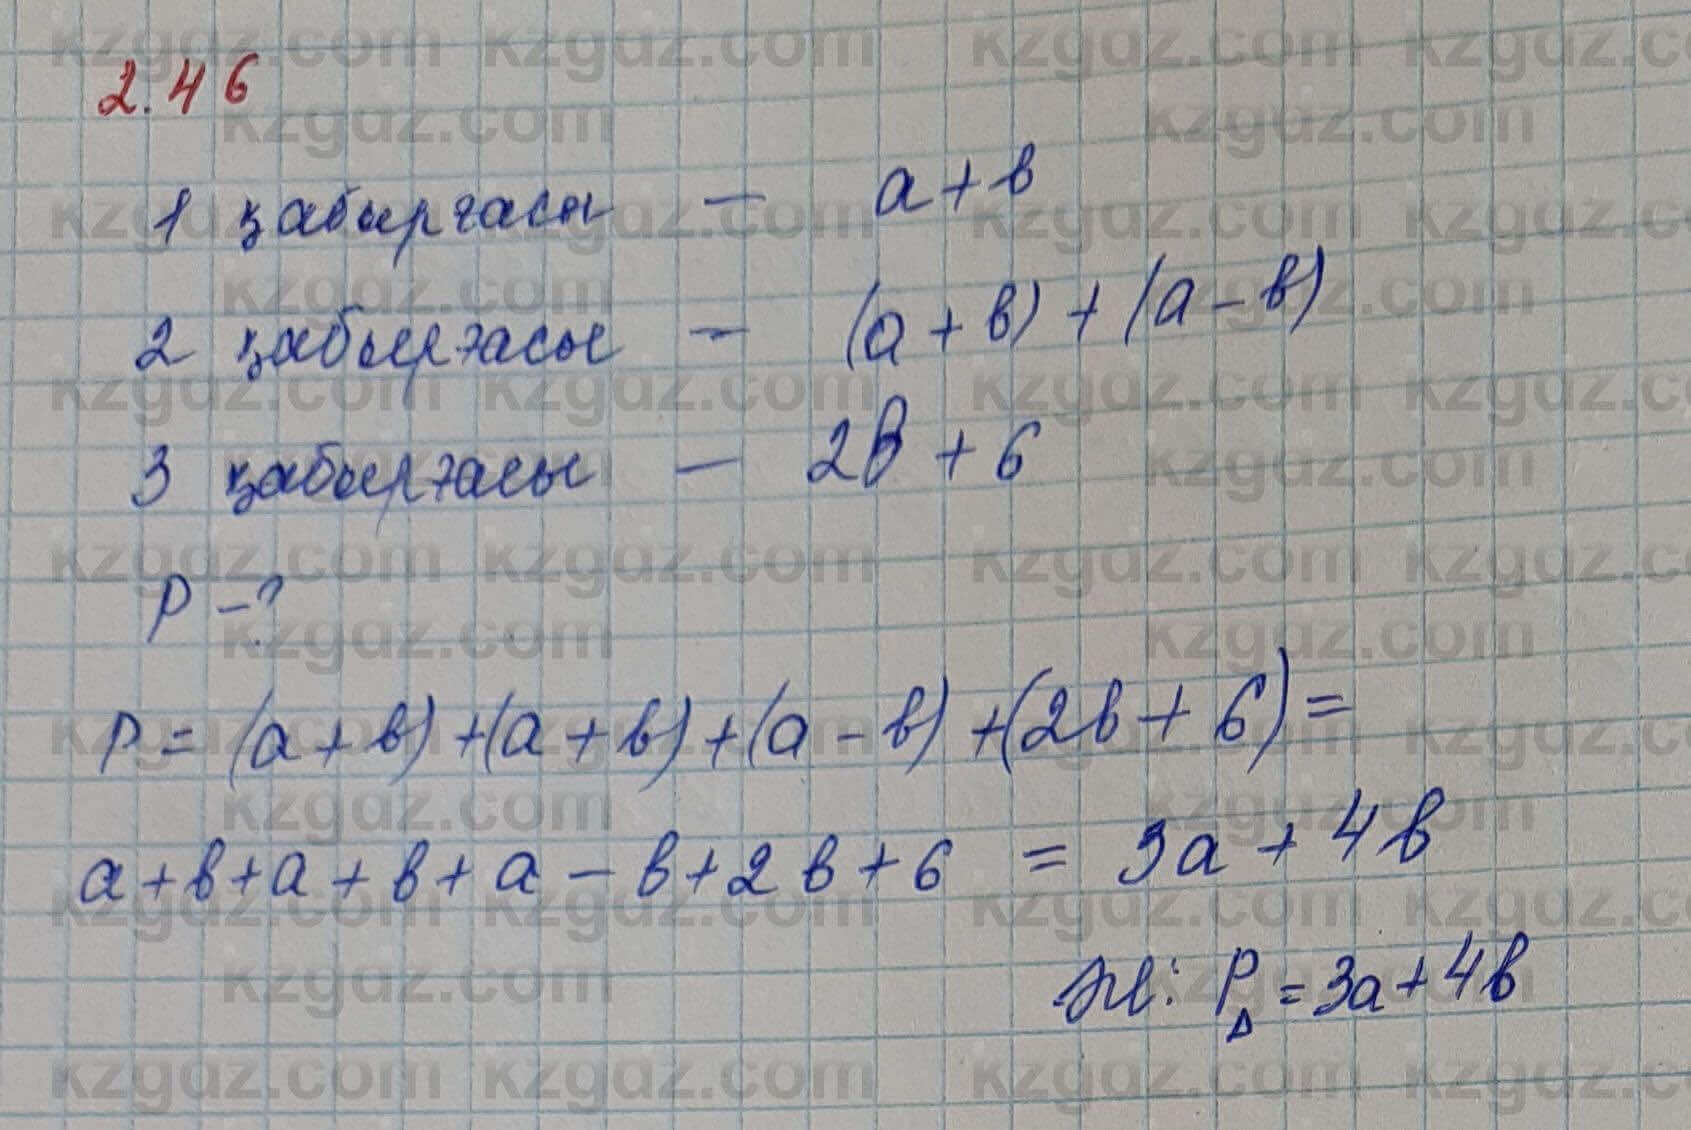 2.46
1 қабырғасы – а+в
2 қабырғасы – (а+в)+(а-в)
3 қабырғасы – 2в+6
P-?
P=(а+в)+(а+в)+(а-в)+(2в+6)=
а+в+а+в+а-в+2в+6=3а+4в
Ж: P△=3а+4в
kzgdz.com